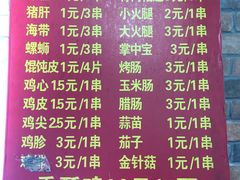 猪肝 1元/3串 小火腿 2元/1串
海带 1元/3串 大火腿 3元/1串
螺蛳 1元/3串 掌中宝 3元/1串
馄饨皮 1元/4片 烤肠 3元/1串
鸡心 1.5元/1串 玉米肠 3元/1串
鸡皮 1.5元/1串 腊肠 3元/1串
鸡尖 2.5元/1串 蒜苗 1元/1串
鸡胗 3元/1串 茄子 1元/1串
3元/1串 金针菇 1元/1串